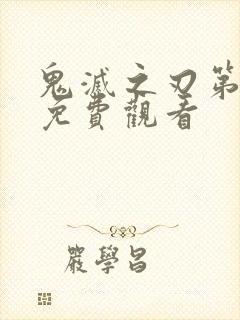 鬼滅之刃第
免費觀看
嚴學昌